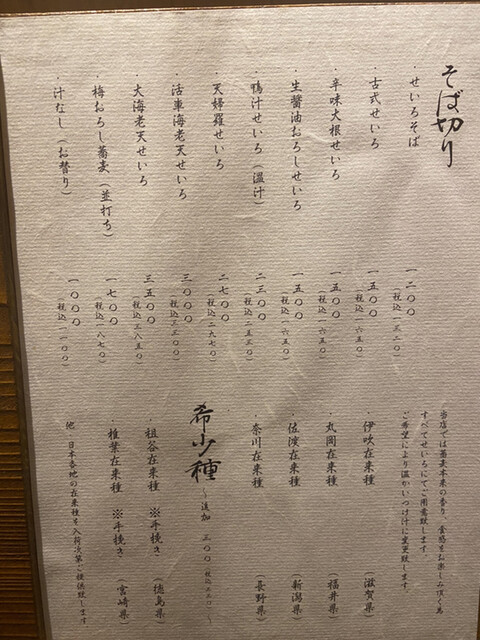 そば切り
・せいろそば 一二〇〇
(税込一三二〇)
・古式せいろ 一五〇〇
(税込一六五〇)
・辛味大根せいろ 一五〇〇
(税込一六五〇)
・生醤油おろしせいろ 一五〇〇
(税込一六五〇)
・鴨汁せいろ(温汁) 二三〇〇
(税込二五三〇)
・天婦羅せいろ 二七〇〇
(税込二九七〇)
・活車海老天せいろ 三〇〇〇
(税込三三〇〇)
・大海老天せいろ 三五〇〇
(税込三八五〇)
・梅おろし蕎麦(並打ち) 一七〇〇
(税込一八七〇)
・汁なし(お替り) 一〇〇〇
(税込一一〇〇)
当店では蕎麦本来の香り、食感をお楽しみ頂く為
すべてせいろにてご用意致します。
ご希望により温かいつけ汁に変更致します。
・伊吹在来種 (滋賀県)
・丸岡在来種 (福井県)
・佐渡在来種 (新潟県)
・奈川在来種 (長野県)
希少種 〜追加 三〇〇(税込三三〇)〜
・祖谷在来種 ※手挽き (徳島県)
・椎葉在来種 ※手挽き (宮崎県)
他、日本各地の在来種を入荷次第ご提供致します。